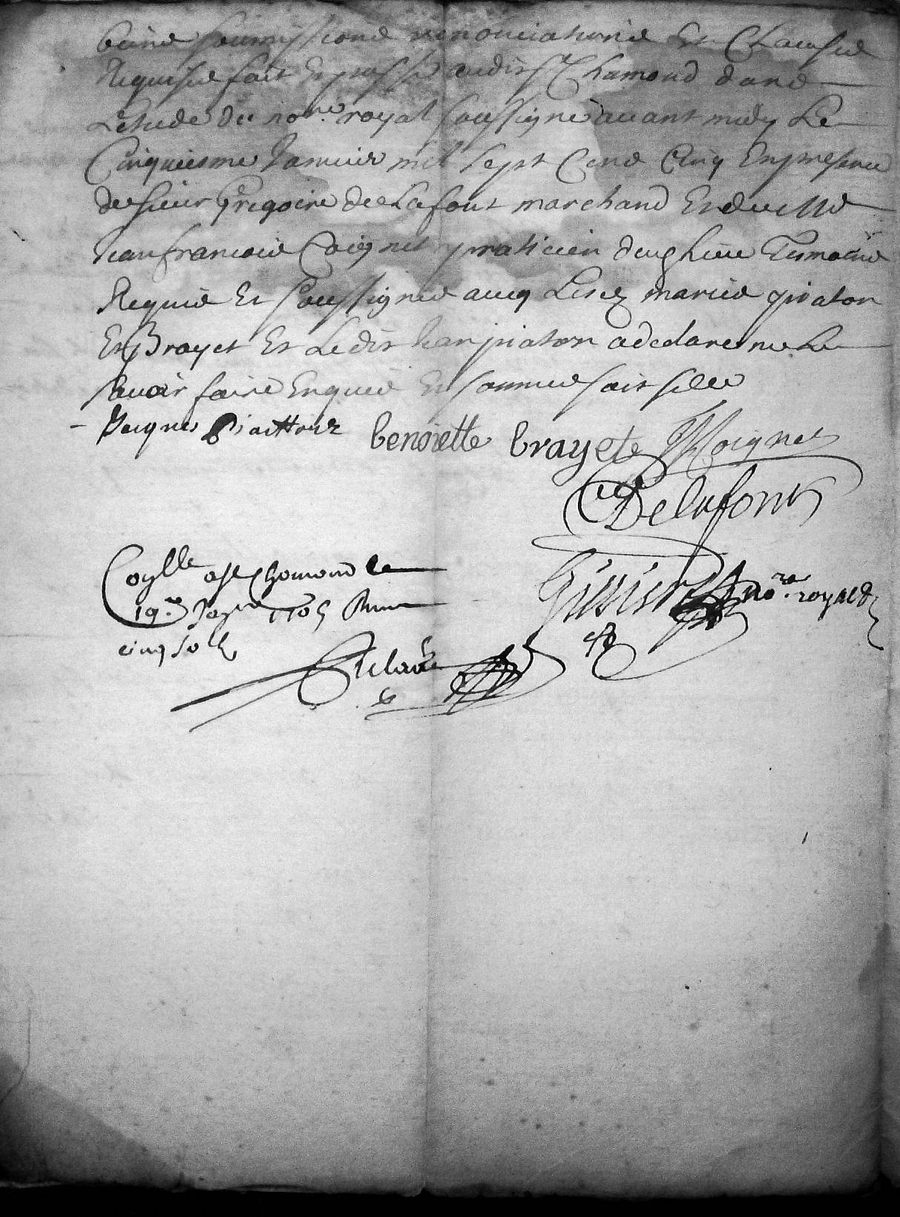 biens soumissions renonciations Et Clauses
Requises fait Et passé audit St Chamond dans
Letude du nore royal soussigné avant midy Le
Cinquiesme Janvier mil sept Cens Cinq En presence
de sieur Grégoire de Lafont marchand Et de
Jean francois Coignet praticien dud lieu Tesmoins
Requis Et soussignes avec Lesd mariés piaton
Et Brayet Et Ledit Jean piaton a declare ne Le
scavoir faire Enquis Et sommes soit
benoiette brayete JF Coignet
Delafont
Coylle a St Chomond le
19me Janer 1705
cinq sols
nore royald